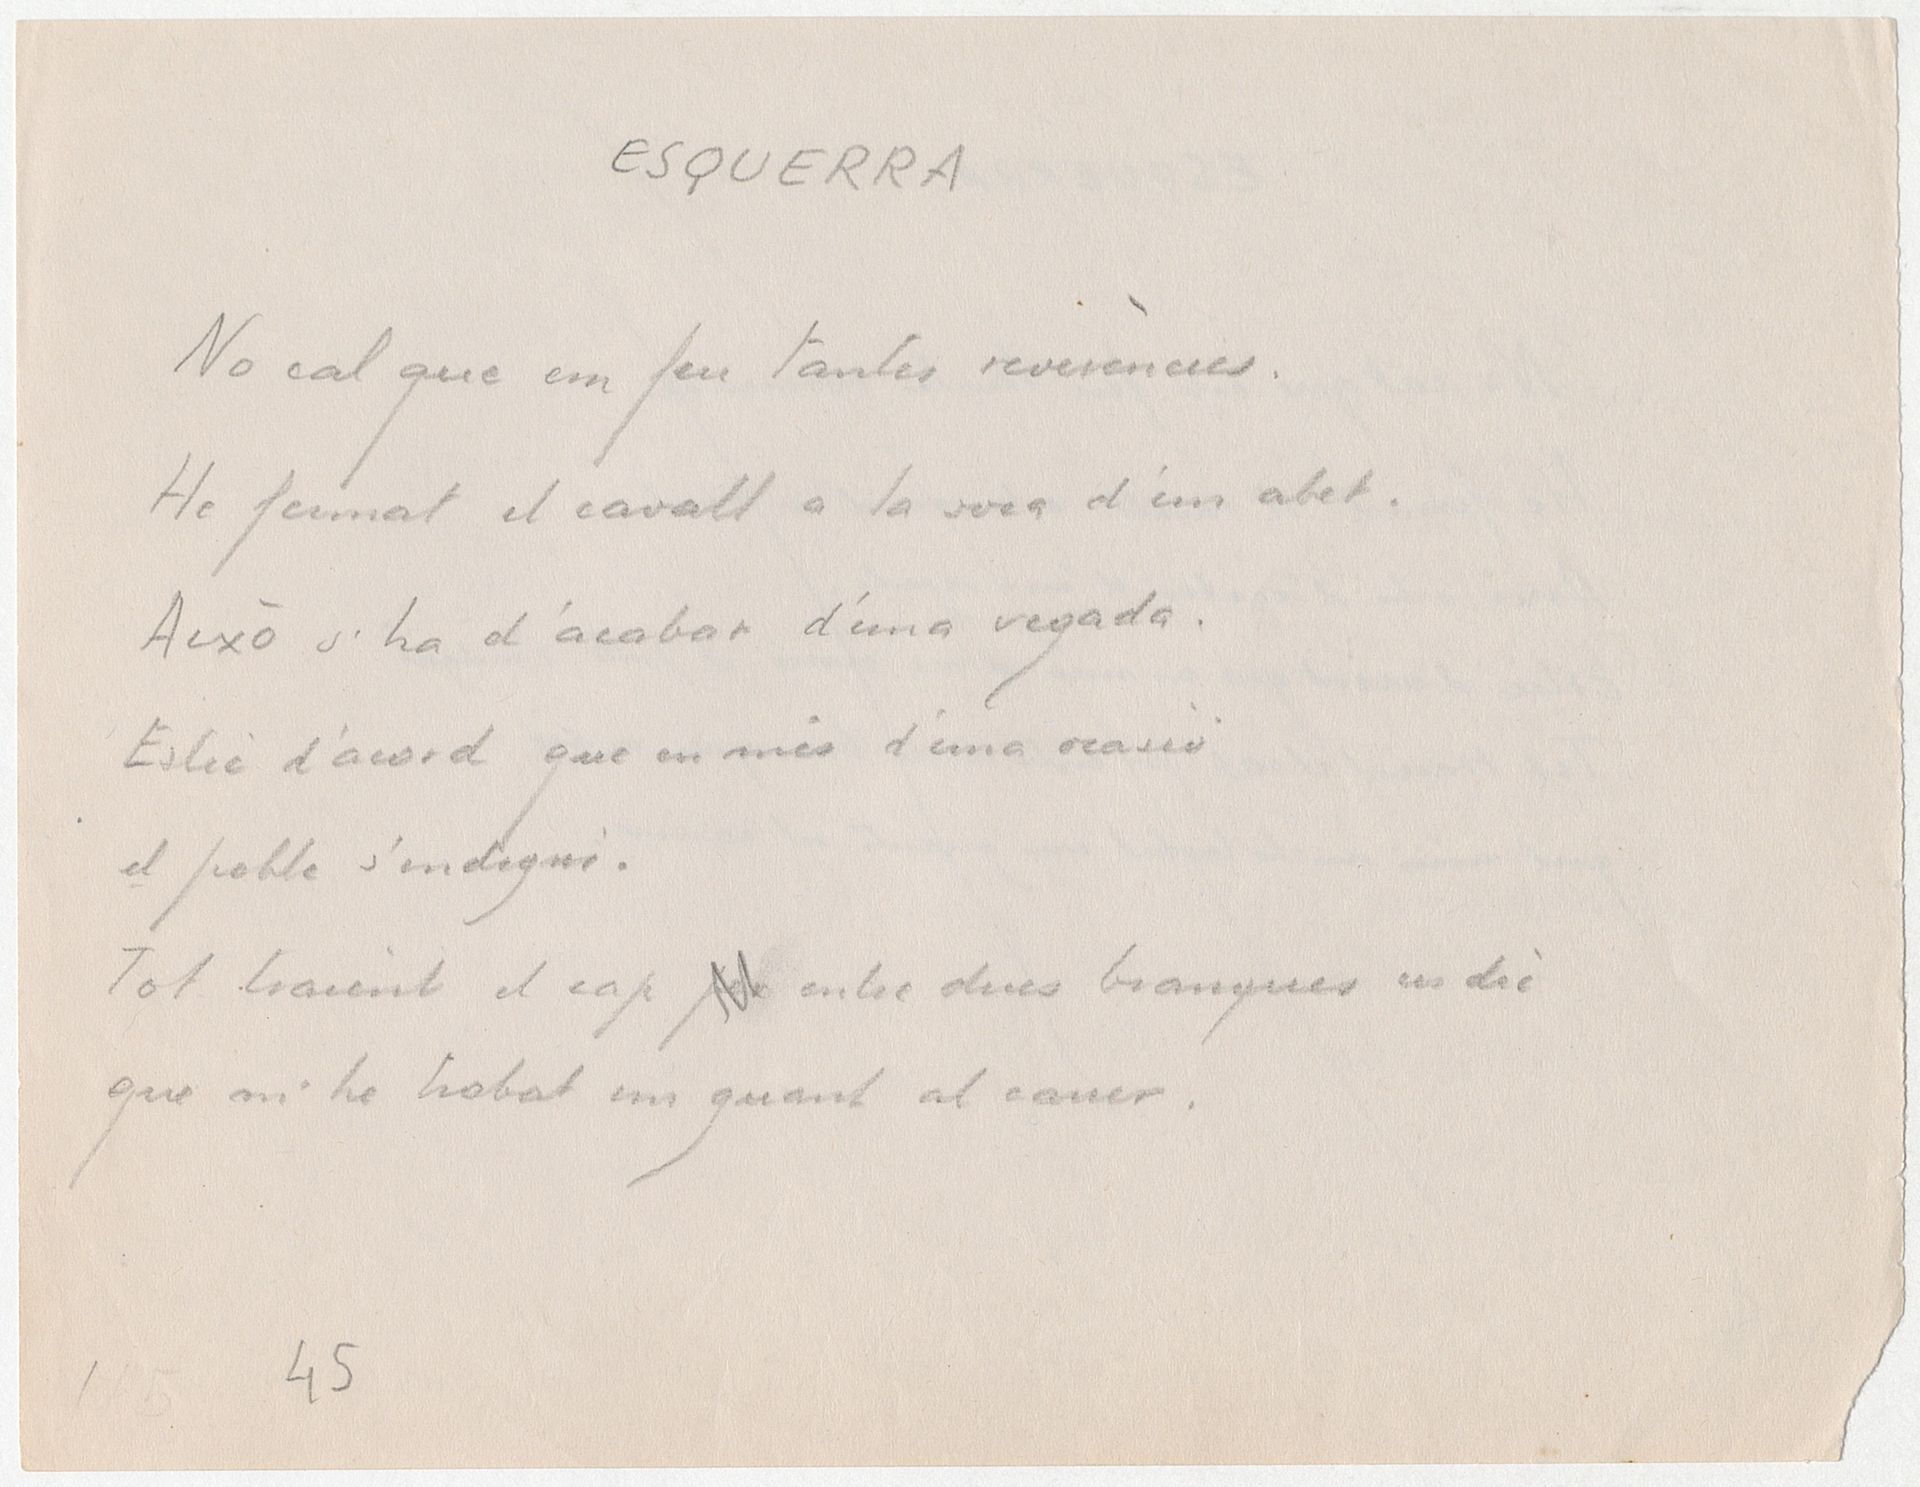 ESQUERRA
No cal que em feu tantes reverències.
He fermat el cavall a la soca d'un abet.
Això s'ha d'acabar d'una vegada.
Estic d'acord que en més d'una ocasió
el poble s'endegui.
Tot traient el cap entre dues branques us dic
que m'he trobat un guant al carrer.
45